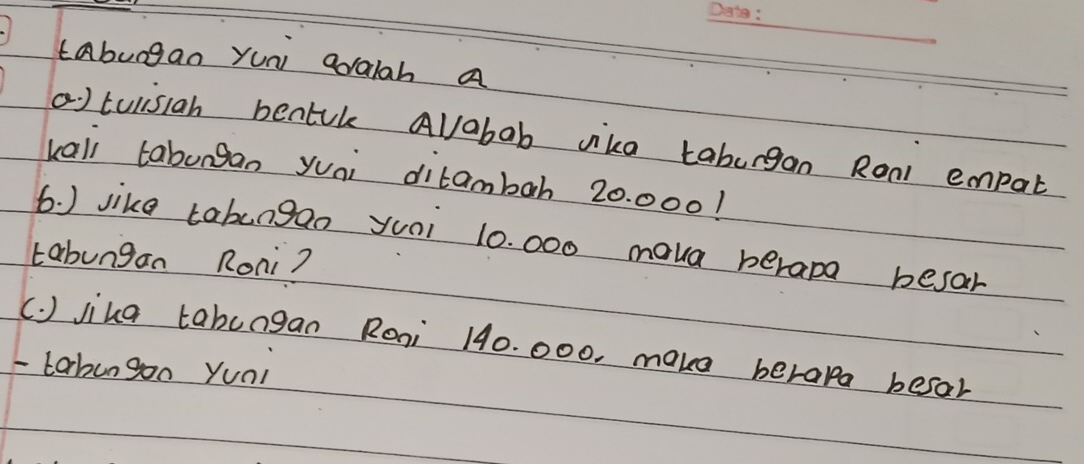 Date:
tabungan yuni adalah A
a.) tulislah bentuk Aljabab jika tabungan Roni empat
kali tabungan yuni ditambah 20.000!
b.) jika tabungan yuni 10.000 maka berapa besar
tabungan Roni?
c.) jika tabungan Roni 140.000, maka berapa besar
- tabungan yuni